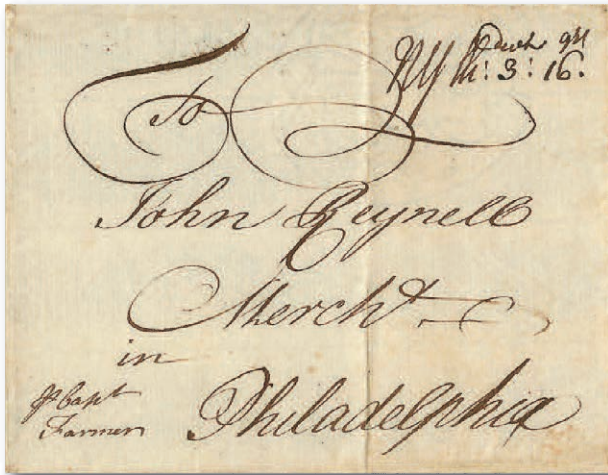 NY
3: 16.
To
John Reynell
Merch.t
in
Philadelphia
P Capt
Farmer